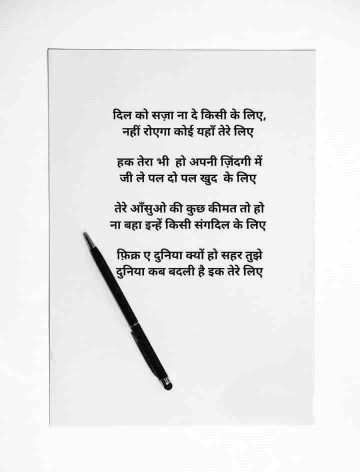 दिल को सज़ा ना दे किसी के लिए,
नहीं रोएगा कोई यहाँ तेरे लिए
हक तेरा भी हो अपनी ज़िंदगी में
जी ले पल दो पल खुद के लिए
तेरे आँसुओ की कुछ कीमत तो हो
ना बहा इन्हें किसी संगदिल के लिए
फ़िक्र ए दुनिया क्यों हो सहर तुझे
दुनिया कब बदली है इक तेरे लिए